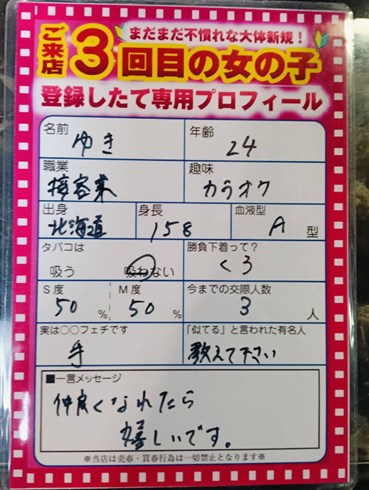 まだまだ不慣れな大体新規！
ご来店3回目の女の子
登録したて専用プロフィール
名前 ゆき
年齢 24
職業 接客業
趣味 カラオケ
出身 北海道
身長 158
血液型 A 型
タバコは
吸う 吸わない
勝負下着って？
くろ
S度 50 %
M度 50 %
今までの交際人数
3 人
実は○○フェチです
手
「似てる」と言われた有名人
教えて下さい
■一言メッセージ
仲良くなれたら
嬉しいです。
※当店は売春・買春行為は一切禁止となります※